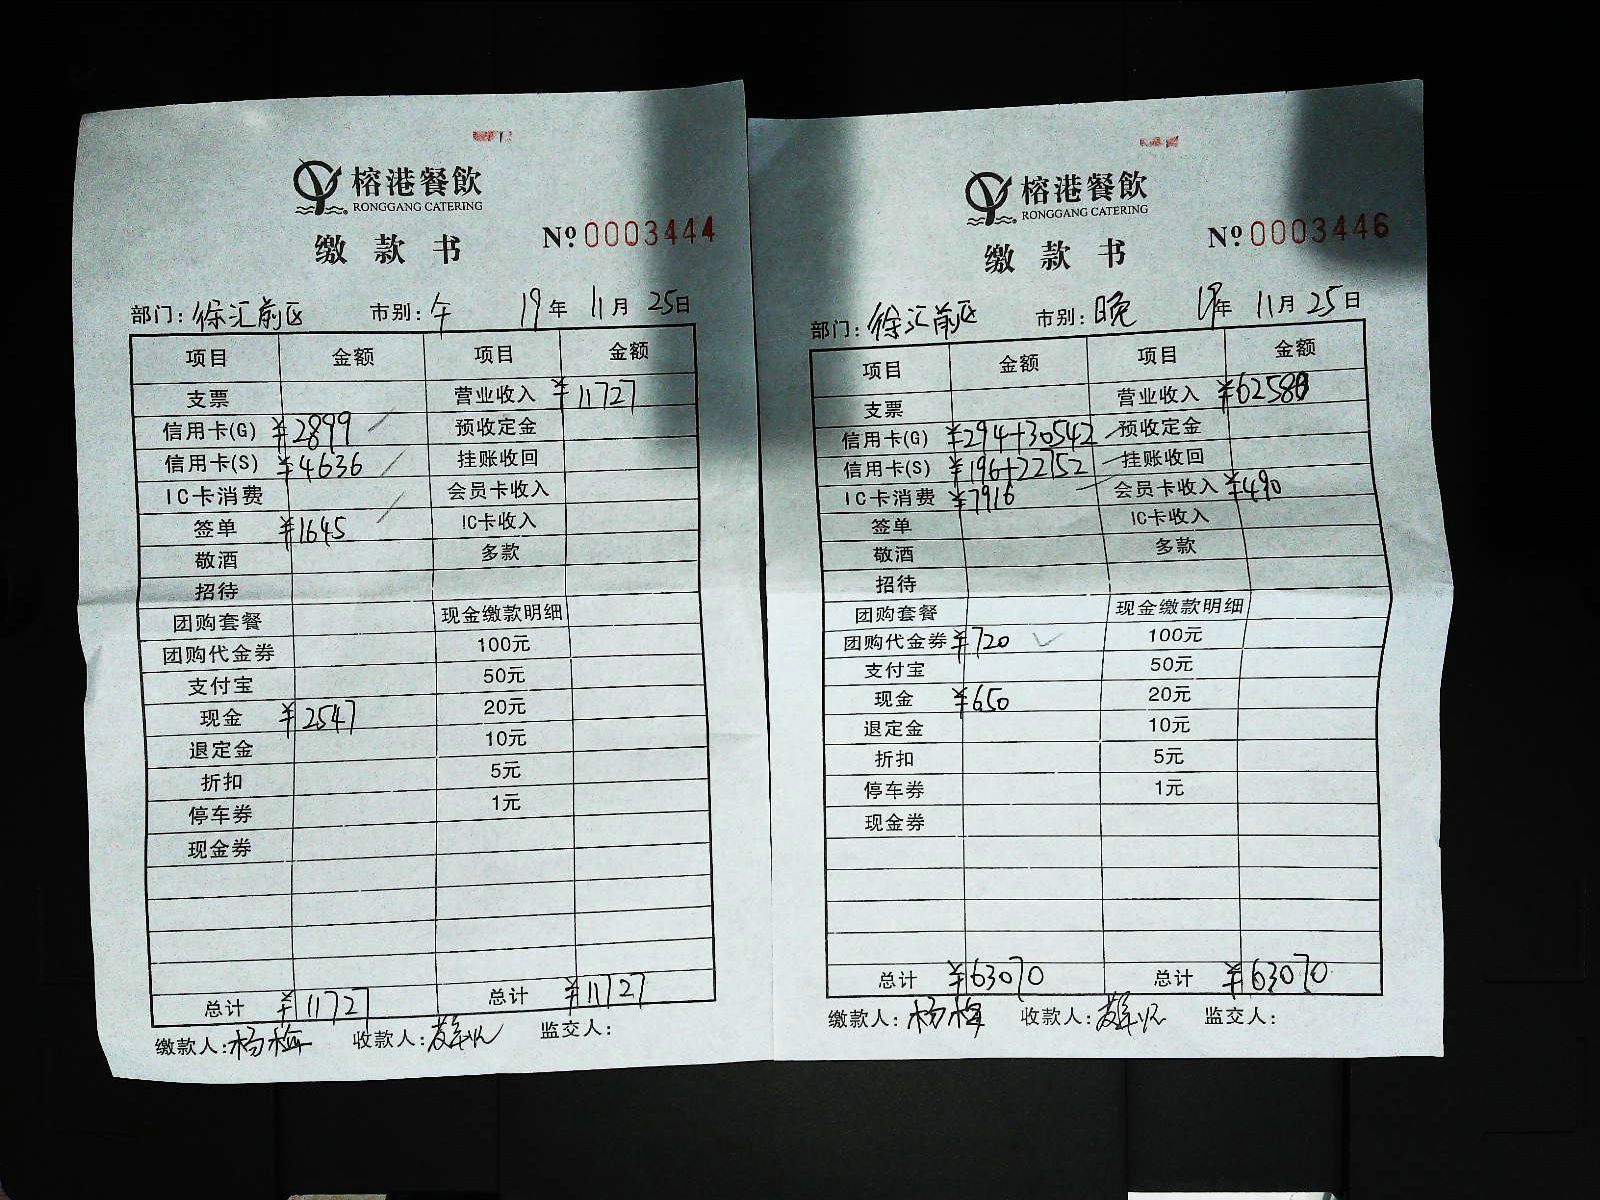 榕港餐飲
RONGGANG CATERING
缴款书
№ 0003444
部门: 徐汇前区 市别: 午 19年 11月 25日
项目 金额 项目 金额
支票 营业收入 ¥11727
信用卡(G) ¥2899 预收定金
信用卡(S) ¥4636 挂账收回
IC卡消费 会员卡收入
签单 ¥1645 IC卡收入
敬酒 多款
招待
团购套餐 现金缴款明细
团购代金券 100元
支付宝 50元
现金 ¥2547 20元
退定金 10元
折扣 5元
停车券 1元
现金券
总计 ¥11727 总计 ¥11727
缴款人: 杨梅 收款人: 监交人:
榕港餐飲
RONGGANG CATERING
缴款书
№ 0003446
部门: 徐汇前区 市别: 晚 19年 11月 25日
项目 金额 项目 金额
支票 营业收入 ¥62580
信用卡(G) ¥294+30542 预收定金
信用卡(S) ¥196+22752 挂账收回
IC卡消费 ¥7916 会员卡收入 ¥490
签单 IC卡收入
敬酒 多款
招待
团购套餐 现金缴款明细
团购代金券 ¥720 100元
支付宝 50元
现金 ¥650 20元
退定金 10元
折扣 5元
停车券 1元
现金券
总计 ¥63070 总计 ¥63070
缴款人: 杨梅 收款人: 监交人: